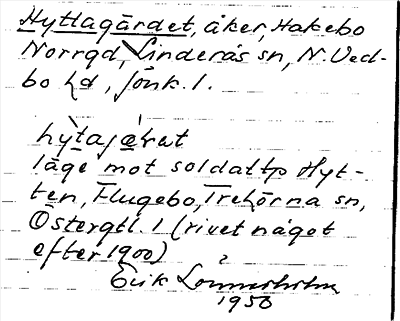 Hyttagärdet, åker, Hakebo
Norrgd, Linderås sn, N. Ved-
bo hd, Jönk. l.
hỳtajæ̀ret
läge mot soldattp Hyt-
ten, Flugebo, Trehörna sn,
Östergtl. l (rivet något
efter 1900)
Erik Lönnerholm
1950